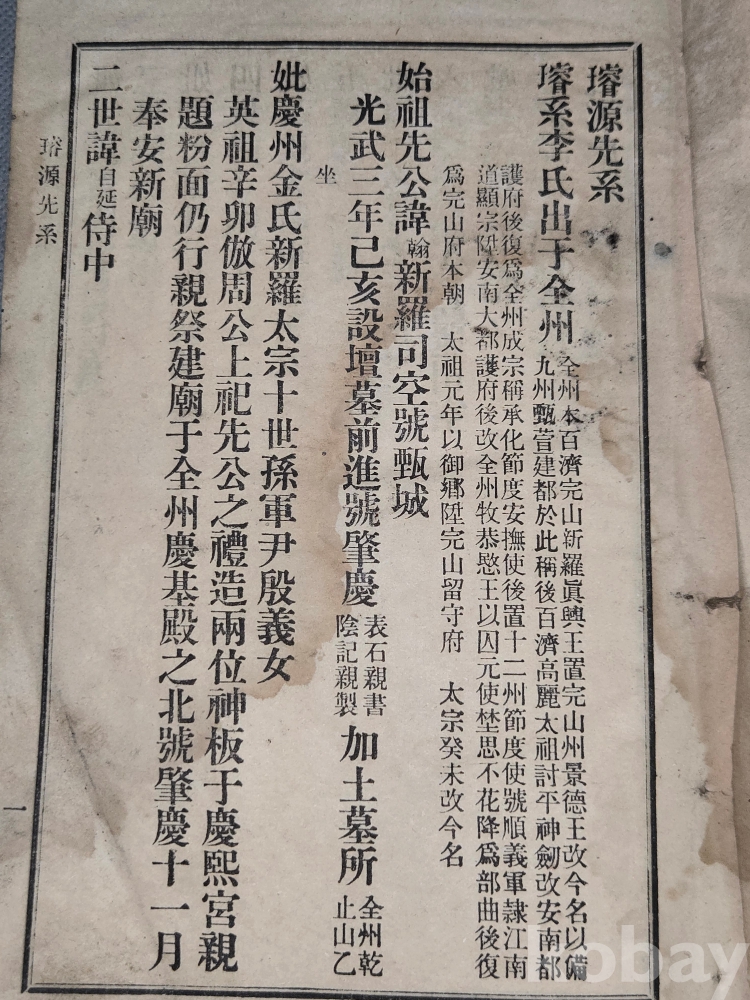 璿源先系
璿系李氏出于全州
全州本百濟完山新羅眞興王置完山州景德王改今名以備
九州甄萱建都於此稱後百濟高麗太祖討平神劒改安南都
護府後復爲全州成宗稱承化節度安撫使後置十二州節度使號順義軍隷江南
道顯宗陞安南大都護府後改全州牧恭愍王以囚元使埜思不花降爲部曲後復
爲完山府本朝 太祖元年以御鄕陞完山留守府 太宗癸未改今名
始祖先公諱翰新羅司空號甄城
光武三年己亥設壇墓前進號肇慶表石親書陰記親製加土墓所全州乾止山乙
坐
妣慶州金氏新羅太宗十世孫軍尹殷義女
英祖辛卯倣周公上祀先公之禮造兩位神板于慶熙宮親
題粉面仍行親祭建廟于全州慶基殿之北號肇慶十一月
奉安新廟
二世諱自延侍中
璿源先系
一
bay